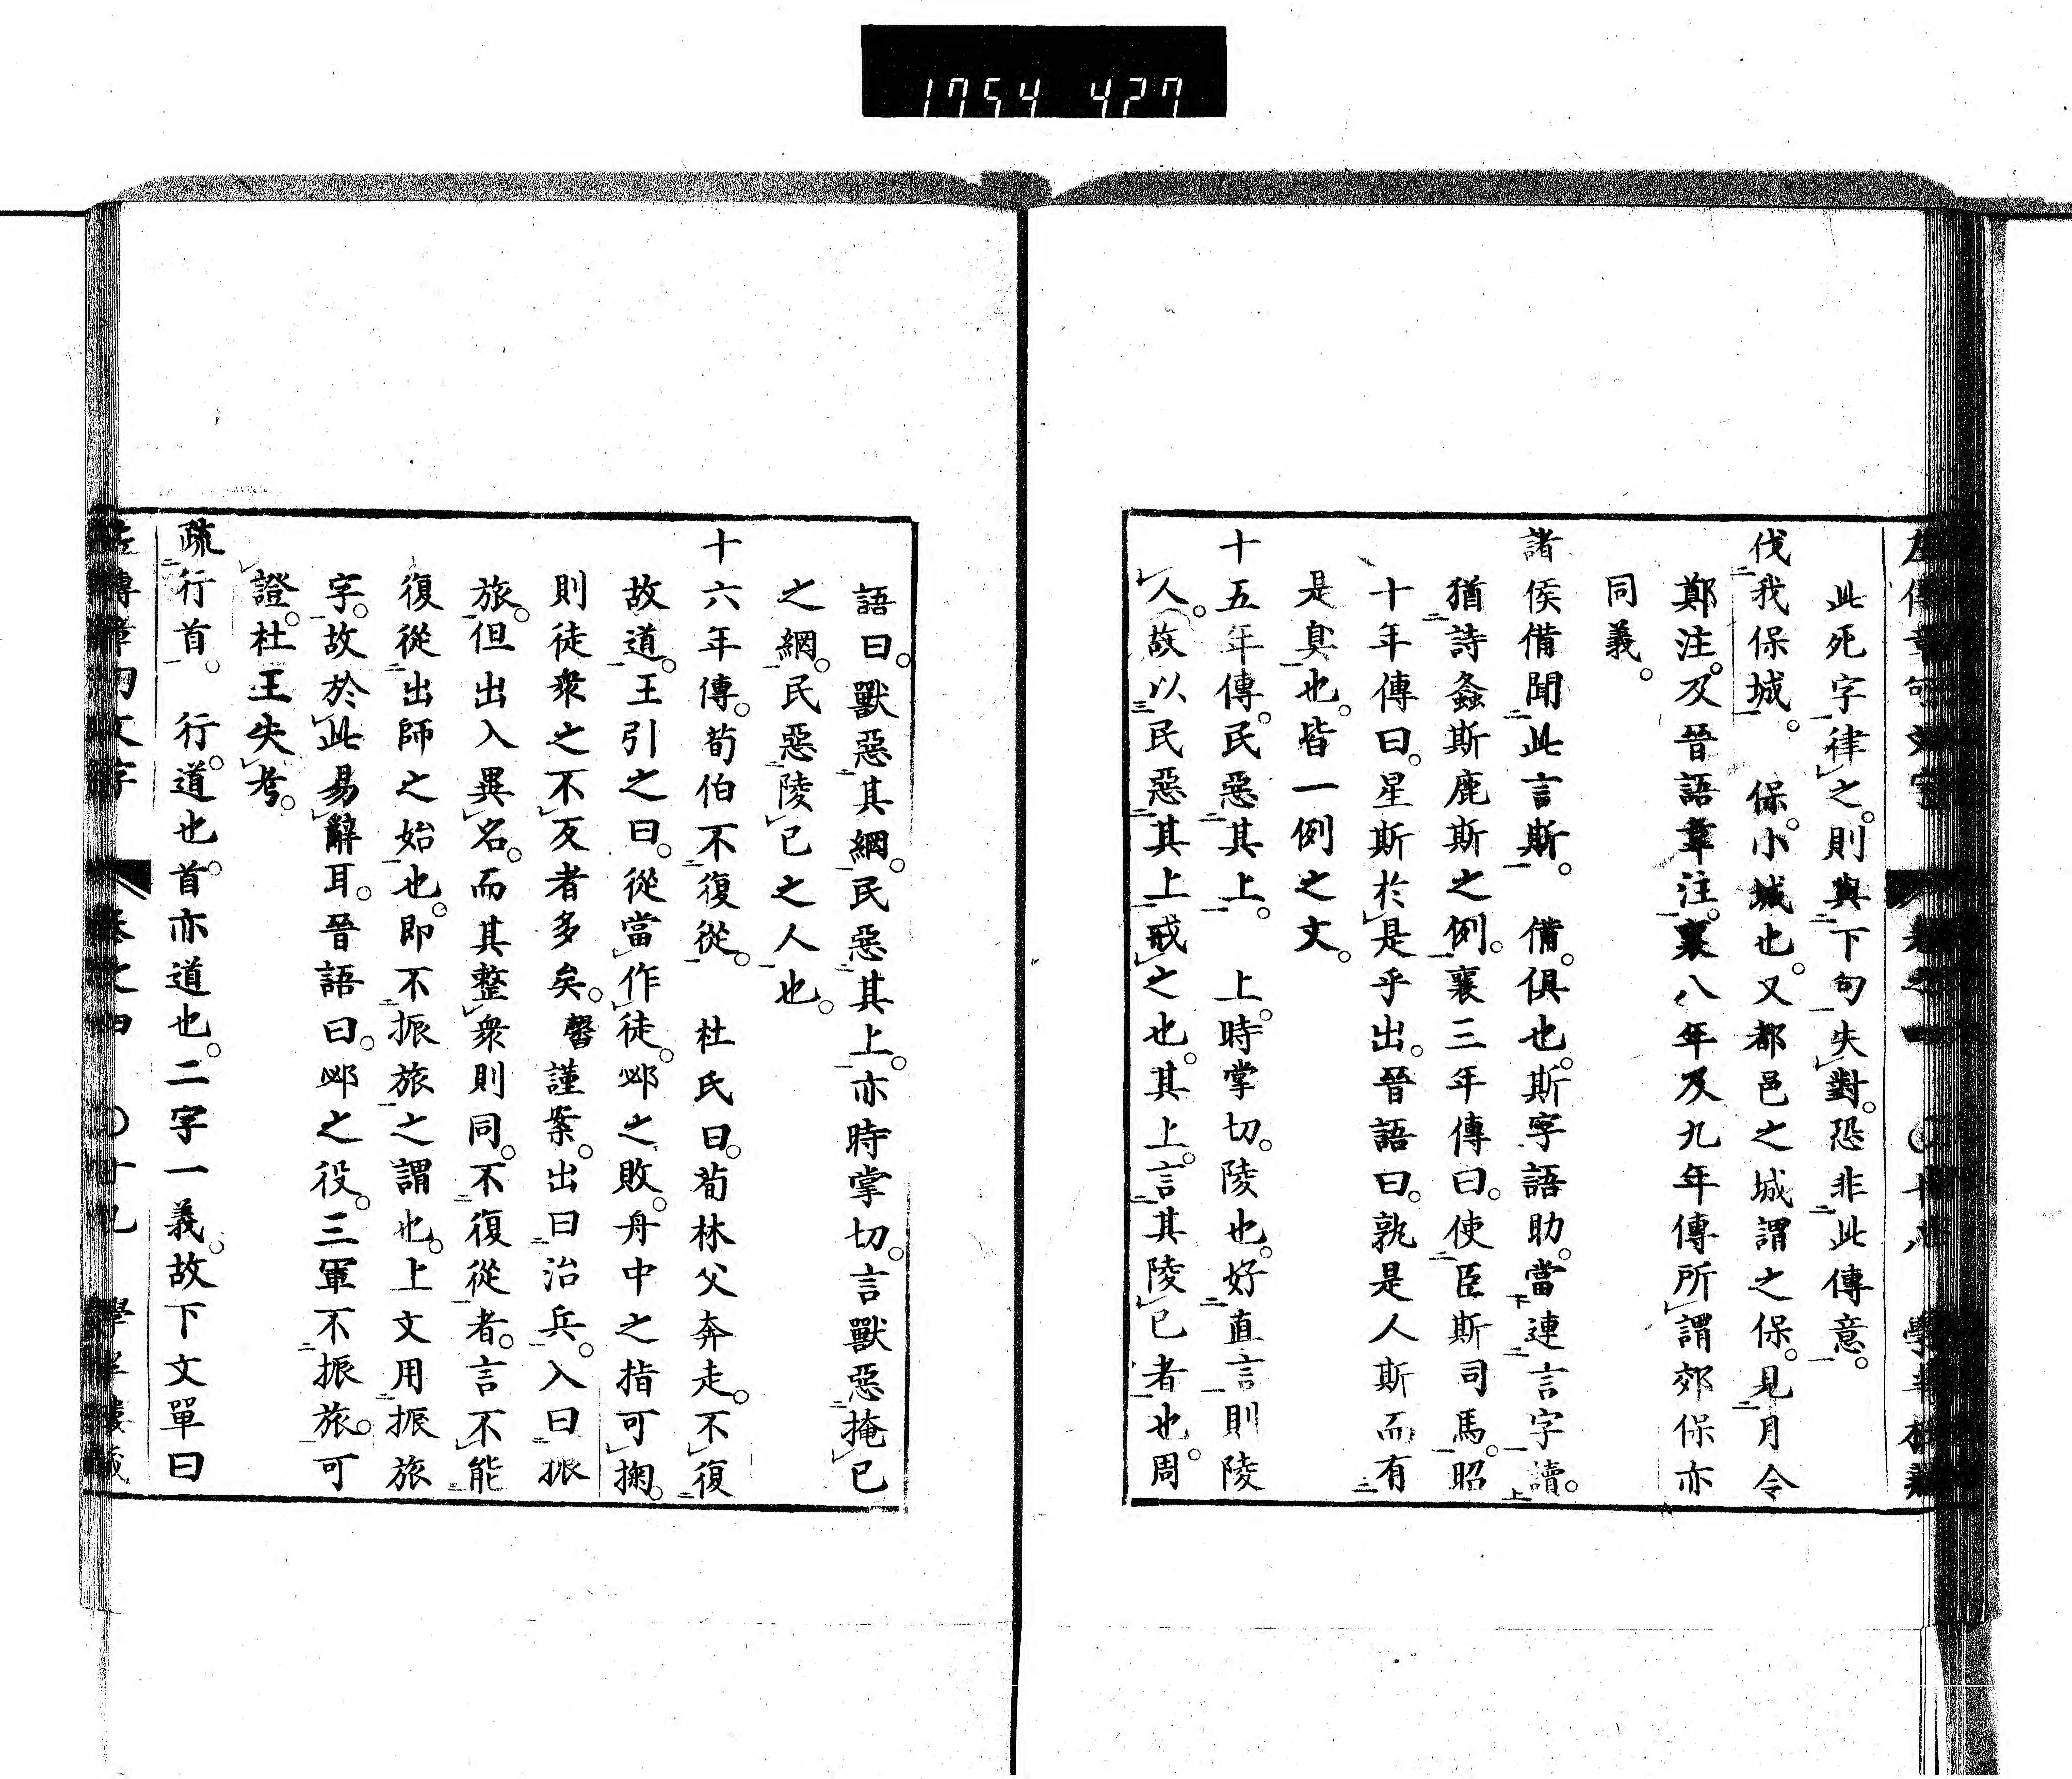 1754 427
此死字律之。則與下句失對。恐非此傳意。
伐我保城。　保。小城也。又都邑之城謂之保。見月令
鄭注。及晉語韋注。襄八年及九年傳所謂郊保亦
同義。
諸侯備聞此言斯。　備。俱也。斯字語助。當連言字讀。
猶詩螽斯鹿斯之例。襄三年傳曰。使臣斯司馬。昭
十年傳曰。星斯於是乎出。晉語曰。孰是人斯而有
是臭也。皆一例之文。
十五年傳。民惡其上。　上。時掌切。陵也。好直言則陵
人。故以民惡其上戒之也。其上。言其陵已者也。周
語曰。獸惡其網。民惡其上。亦時掌切。言獸惡掩已
之網。民惡陵已之人也。
十六年傳。荀伯不復從。　杜氏曰。荀林父奔走。不復
故道。王引之曰。從當作徒。邲之敗。舟中之指可掬。
則徒衆之不反者多矣。馨謹案。出曰治兵。入曰振
旅。但出入異名。而其整衆則同。不復從者。言不能
復從出師之始也。即不振旅之謂也。上文用振旅
字。故於此易辭耳。晉語曰。邲之役。三軍不振旅。可
證。杜王失考。
疏行首。　行。道也。首亦道也。二字一義。故下文單曰